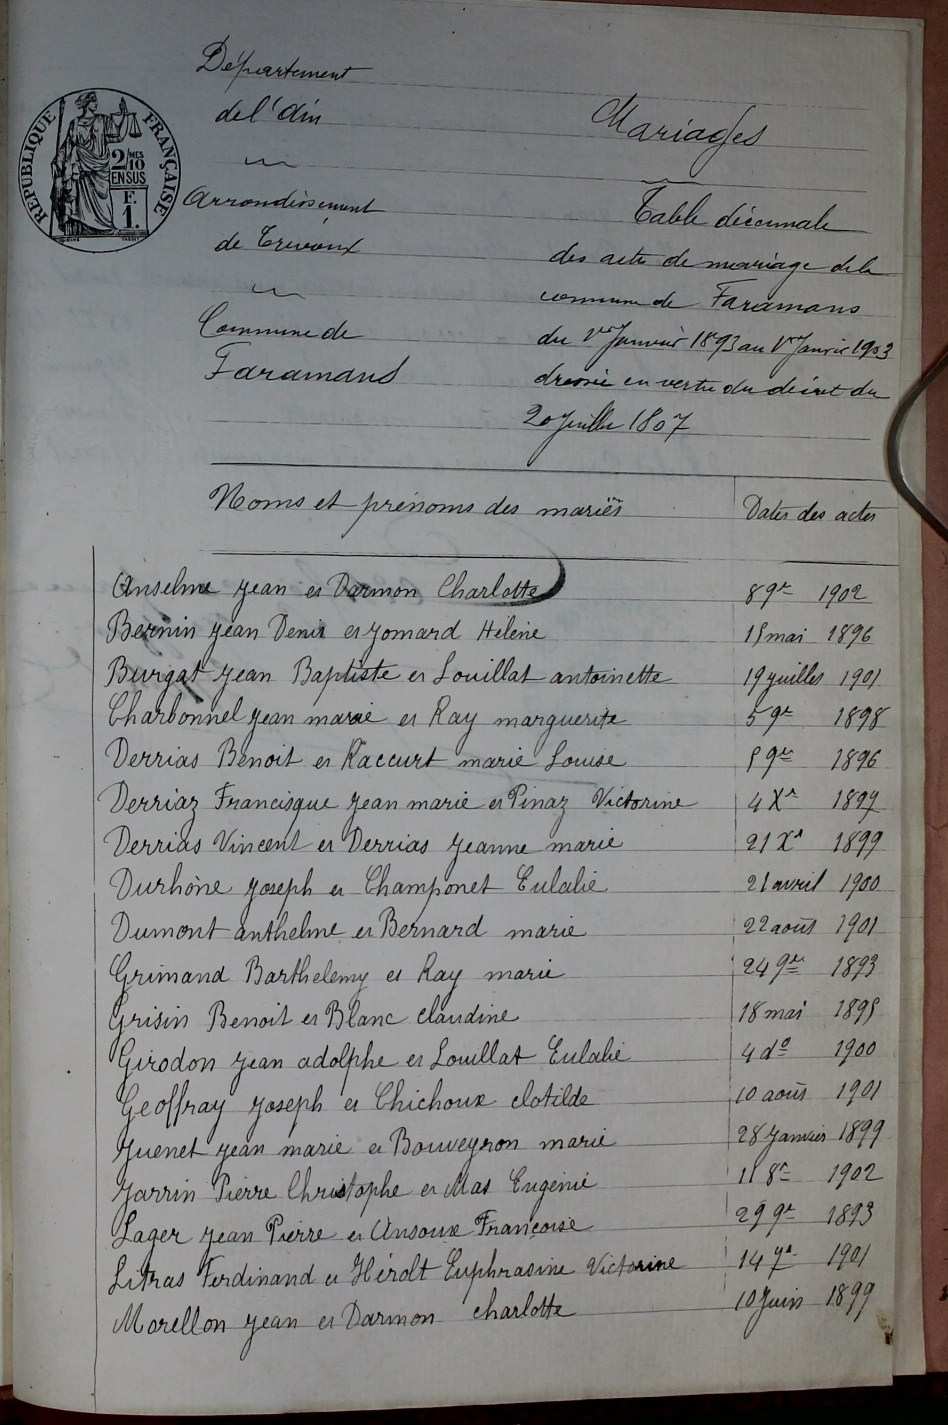 Département
de l'Ain
Arrondissement
de Trévoux
Commune de
Faramans
RÉPUBLIQUE FRANÇAISE
2/MES
10
EN SUS
F.
1.
Mariages
Table décennale
des actes de mariage de la
commune de Faramans
du 1er Janvier 1893 au 1er Janvier 1903
dressée en vertu du décret du
20 Juillet 1807
Noms et prénoms des mariés Dates des actes
Anselme Jean et Darmon Charlotte 8 9re 1902
Bernin Jean Denis et Jomard Hélène 15 mai 1896
Burgat Jean Baptiste et Louillat antoinette 19 juillet 1901
Charbonnel Jean marie et Ray marguerite 5 9re 1898
Derrias Benoit et Raccurt marie Louise 5 9re 1896
Derriaz Francisque Jean marie et Pinaz Victorine 4 Xre 1897
Derrias Vincent et Derrias Jeanne marie 21 Xre 1899
Durhône Joseph et Championet Eulalie 21 avril 1900
Dumont anthelme et Bernard marie 22 août 1901
Grimand Barthelemy et Ray marie 24 9re 1893
Grisin Benoit et Blanc claudine 18 mai 1895
Girodon Jean adolphe et Louillat Eulalie 4 do 1900
Geoffray Joseph et Chichoux clotilde 10 août 1901
Juenet Jean marie et Bouveyron marie 28 Janvier 1899
Jarrin Pierre Christophe et Mas Eugénie 15 8re 1902
Lager Jean Pierre et Ansoux Françoise 29 9re 1893
Litras Ferdinand et Hérolt Euphrasine Victorine 14 7re 1901
Morellon Jean et Darmon charlotte 10 Juin 1899